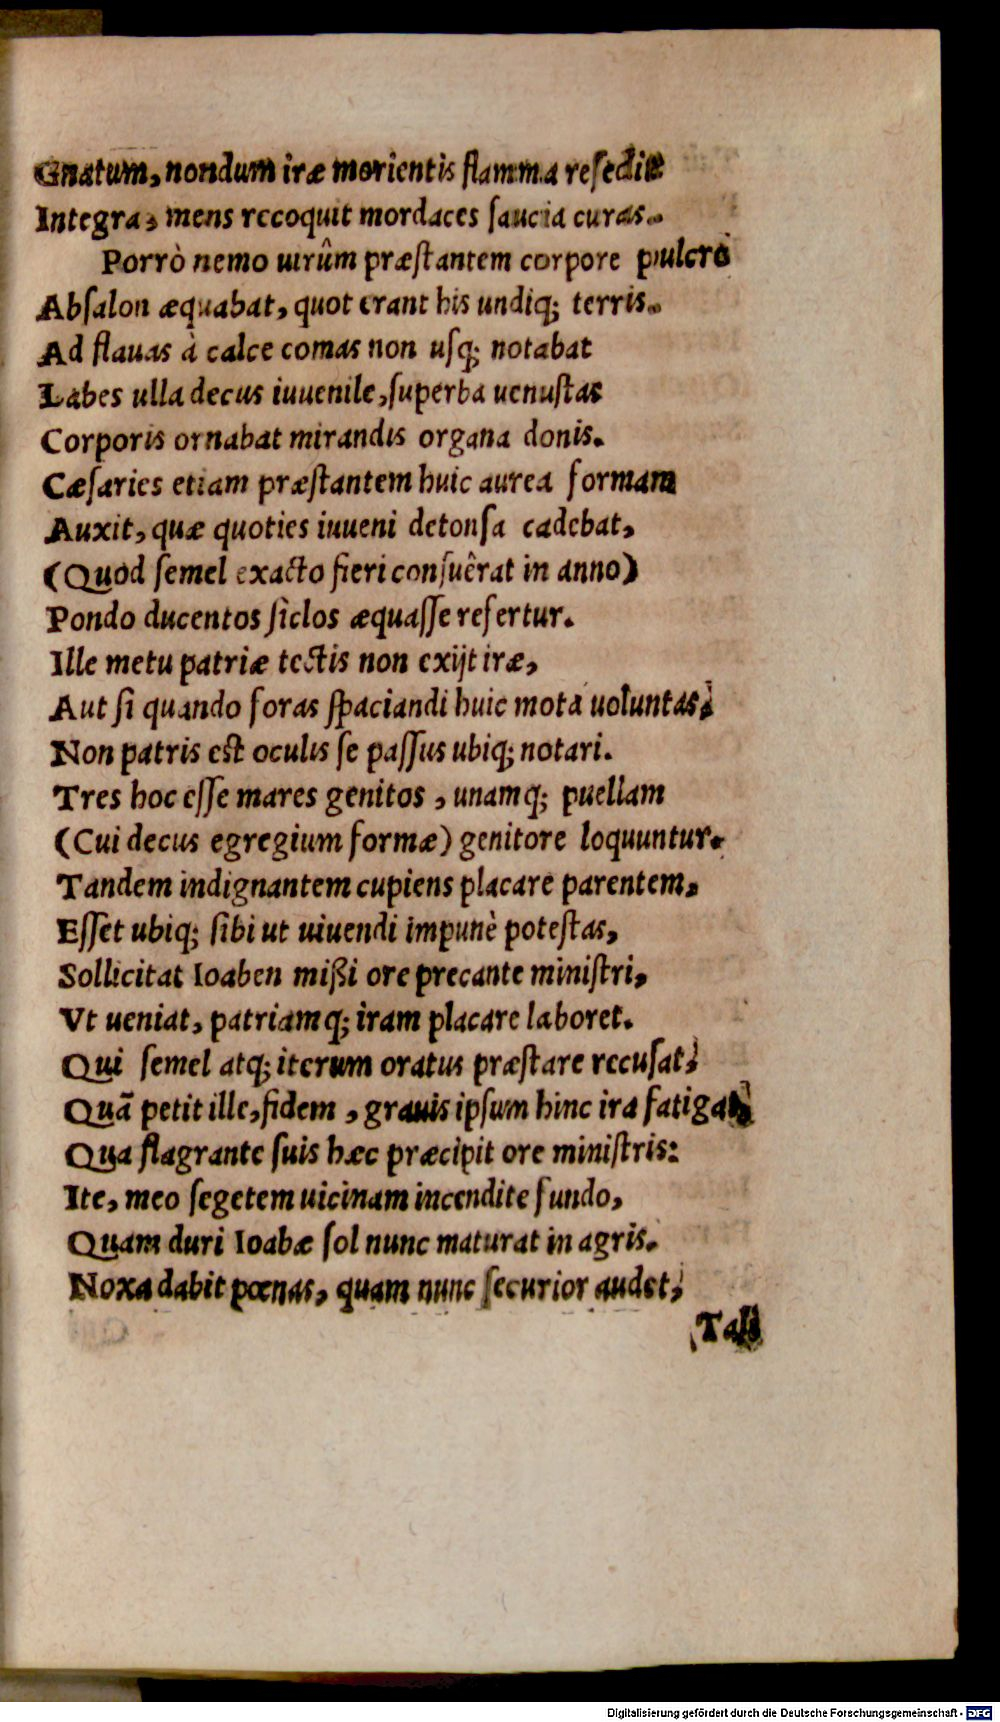 Gnatum, nondum iræ morientis flamma resedit
Integra, mens recoquit mordaces saucia curas.
Porrò nemo uirûm præstantem corpore pulcro
Absalon æquabat, quot erant his undiq; terris.
Ad flauas à calce comas non usq; notabat
Labes ulla decus iuuenile, superba uenustas
Corporis ornabat mirandis organa donis.
Cæsaries etiam præstantem huic aurea formam
Auxit, quæ quoties iuueni detonsa cadebat,
(Quod semel exacto fieri consuêrat in anno)
Pondo ducentos siclos æquasse refertur.
Ille metu patriæ tectis non exijt iræ,
Aut si quando foras spaciandi huic mota uoluntas,
Non patris est oculis se passus ubiq; notari.
Tres hoc esse mares genitos, unamq; puellam
(Cui decus egregium formæ) genitore loquuntur.
Tandem indignantem cupiens placare parentem,
Esset ubiq; sibi ut uiuendi impunè potestas,
Sollicitat Ioaben mißi ore precante ministri,
Vt ueniat, patriamq; iram placare laboret.
Qui semel atq; iterum oratus præstare recusat,
Quã petit ille, fidem, grauis ipsum hinc ira fatigat,
Qua flagrante suis hæc præcipit ore ministris:
Ite, meo segetem uicinam incendite fundo,
Quam duri Ioabæ sol nunc maturat in agris.
Noxa dabit pœnas, quam nunc securior audet,
Tali
Digitalisierung gefördert durch die Deutsche Forschungsgemeinschaft - DFG